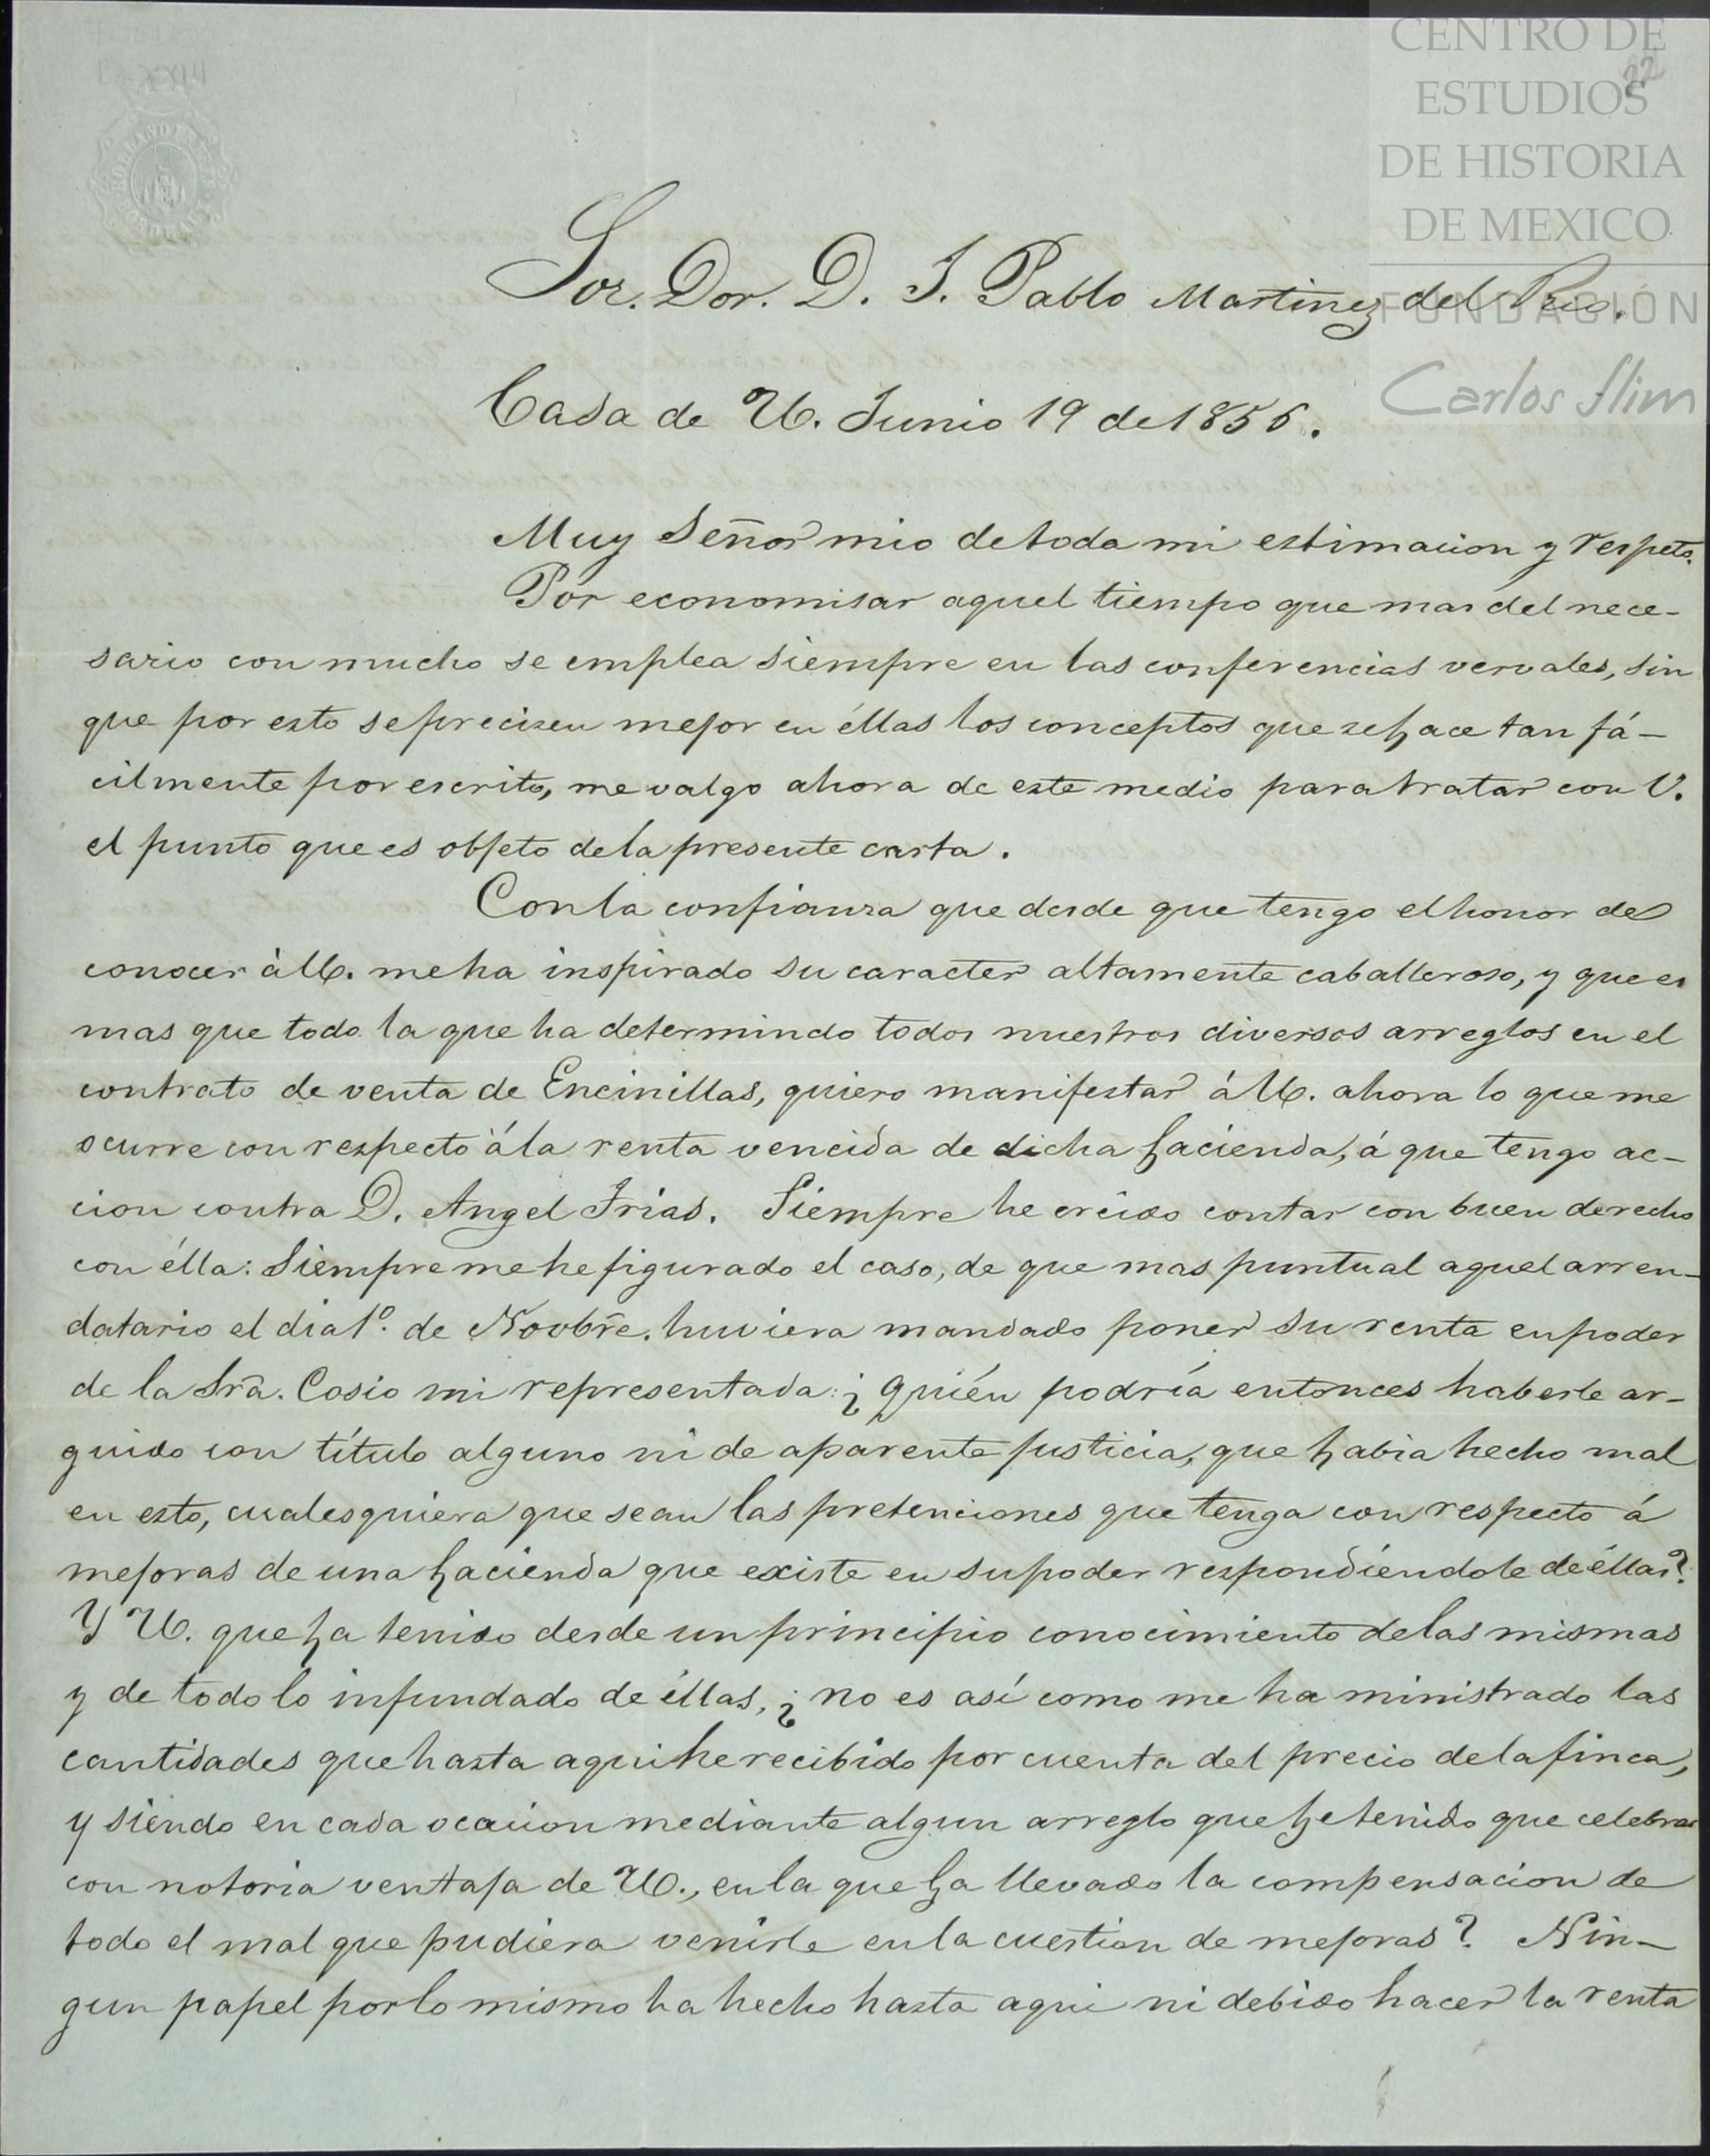 CENTRO DE
ESTUDIOS
DE HISTORIA
DE MEXICO
FUNDACIÓN
Carlos Slim
22
Sor. Dor. D. J. Pablo Martinez del Rio.
Casa de U. Junio 19 de 1856.
Muy Señor mio de toda mi estimacion y respeto.
Por economisar aquel tiempo que mas del nece-
sario con mucho se emplea siempre en las conferencias vervales, sin
que por esto se precisen mejor en éllas los conceptos que se hace tan fá-
cilmente por escrito, me valgo ahora de este medio para tratar con V.
el punto que es objeto de la presente carta.
Con la confianza que desde que tengo el honor de
conocer à U. me ha inspirado su caracter altamente caballeroso, y que es
mas que todo la que ha determindo todos nuestros diversos arreglos en el
contrato de venta de Encinillas, quiero manifestar á U. ahora lo que me
ocurre con respecto á la renta vencida de dicha hacienda, á que tengo ac-
cion contra D. Angel Frias. Siempre he creido contar con buen derecho
con élla: Siempre me he figurado el caso, de que mas puntual aquel arren-
datario el dia 1º. de Novbre. huviera mandado poner su renta en poder
de la Sra. Cosio mi representada: ¿quién podría entonces haberle ar-
guido con título alguno ni de aparente justicia, que habia hecho mal
en esto, cualesquiera que sean las pretenciones que tenga con respecto á
mejoras de una hacienda que existe en su poder respondiéndole de éllas?
Y U. que ha tenido desde un principio conocimiento de las mismas
y de todo lo infundado de éllas, ¿no es así como me ha ministrado las
cantidades que hasta aqui he recibido por cuenta del precio de la finca,
y siendo en cada ocacion mediante algun arreglo que he tenido que celebrar
con notoria ventaja de U., en la que ha llevado la compensacion de
todo el mal que pudiera venirle en la cuestion de mejoras? Nin-
gun papel por lo mismo ha hecho hasta aqui ni debido hacer la renta